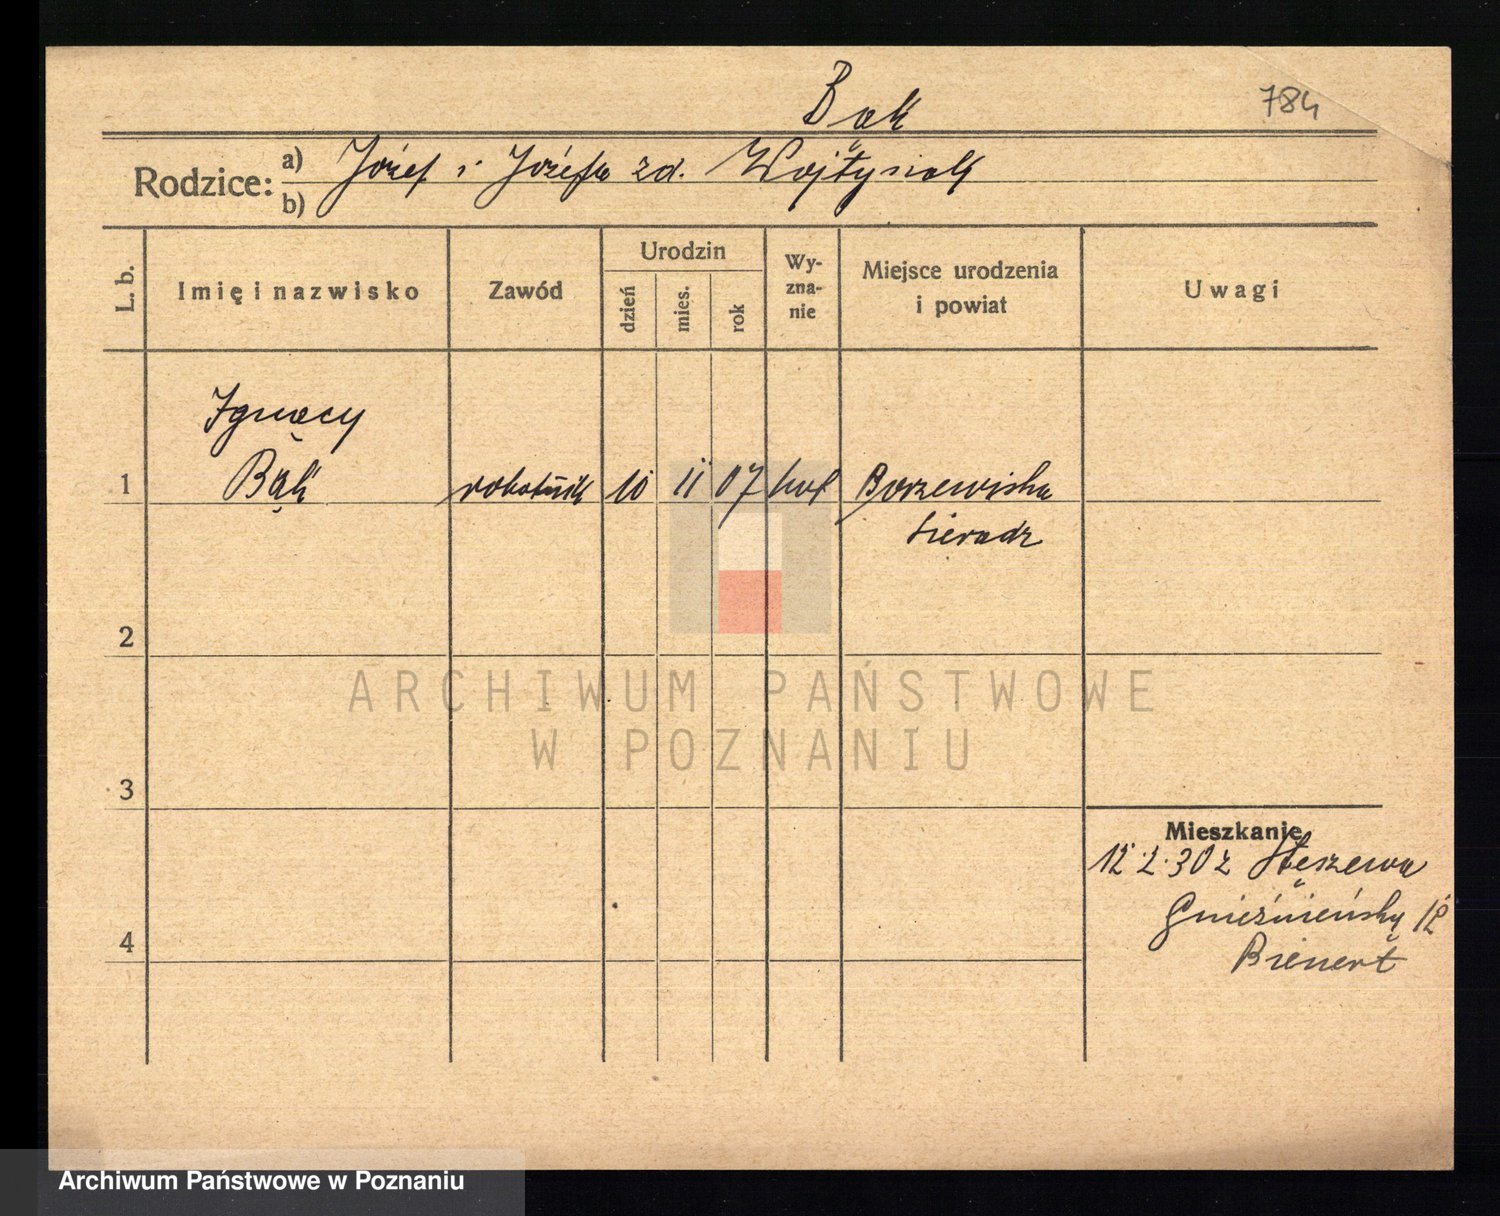 Bąk
784
Rodzice:
a) Józef i Józefa zd. Wojtysiak
b)
L. b.
Imię i nazwisko
Zawód
Urodzin
dzień
mies.
rok
Wy-
zna-
nie
Miejsce urodzenia
i powiat
Uwagi
Ignacy
1 Bąk robotnik 10 11 07 kat Borzewiska
Sieradz
2
3
4
Mieszkanie
12.2.30 z Stęszewa
Gnieźnieńska 12
Bienert
ARCHIWUM PAŃSTWOWE
W POZNANIU
Archiwum Państwowe w Poznaniu